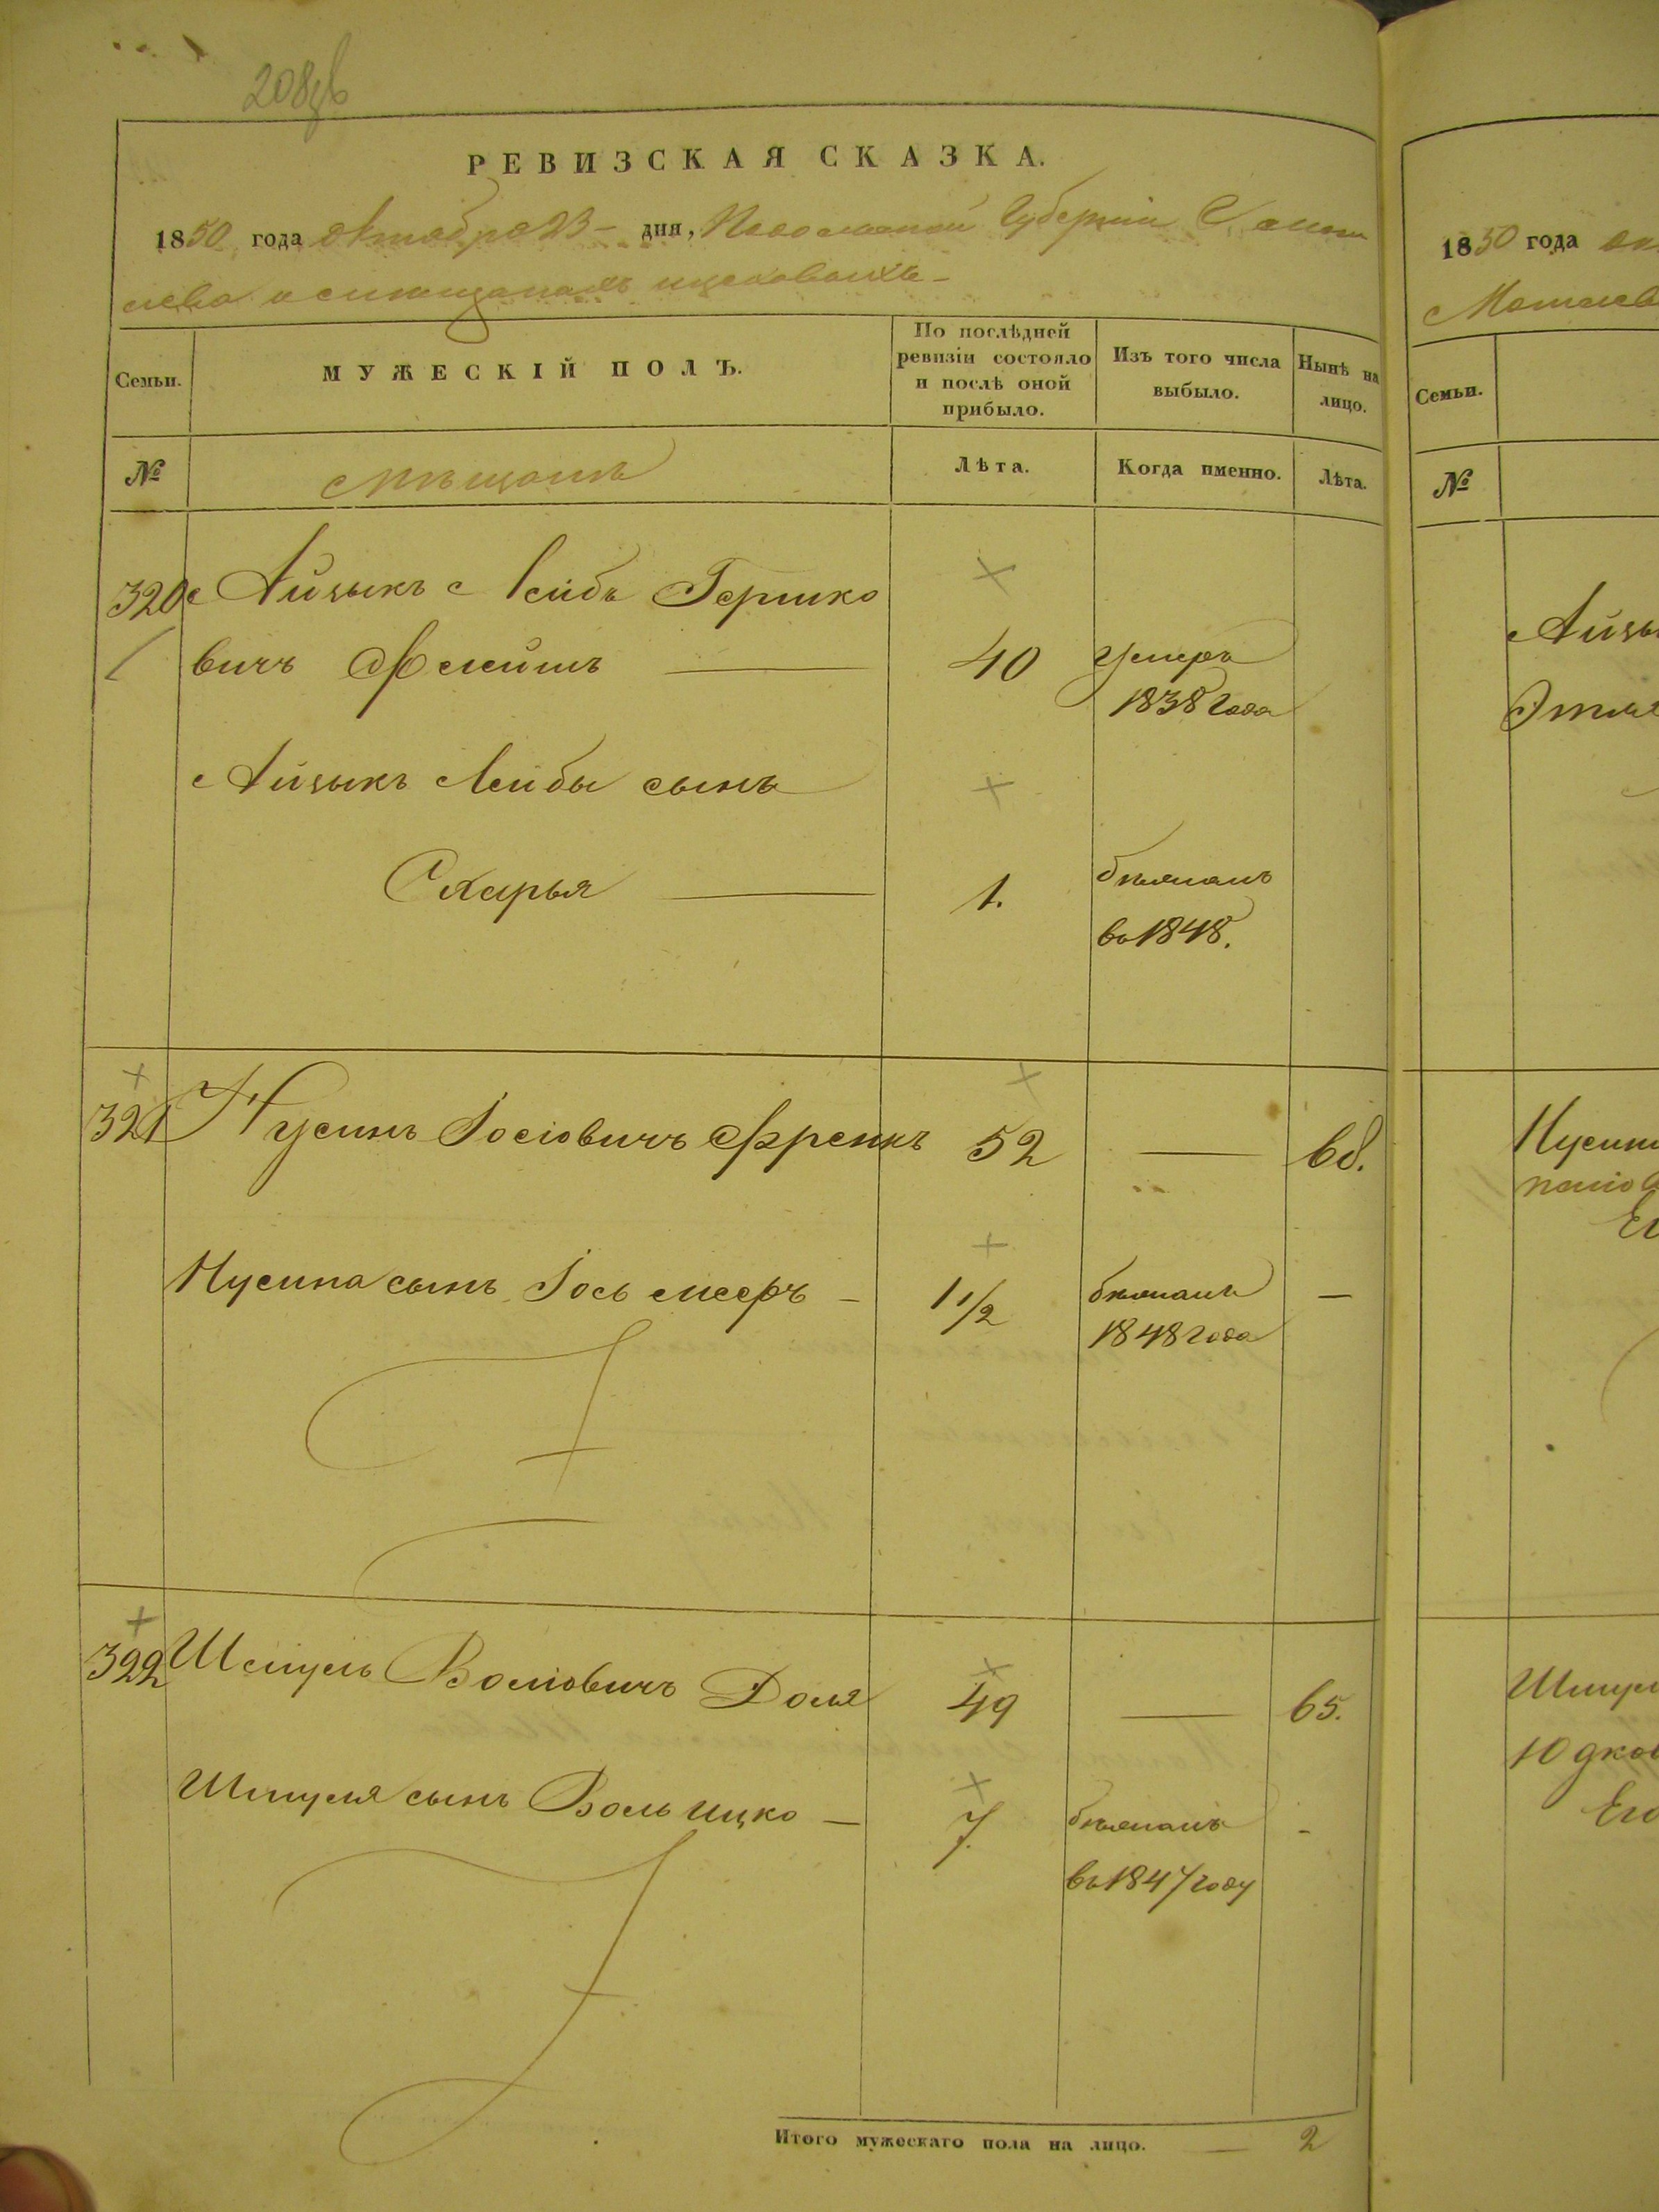 208
РЕВИЗСКАЯ СКАЗКА.
1850 года октября 23 дня, Подольской Губерніи
1850 года
Семьи.
МУЖЕСКІЙ ПОЛЪ.
По послѣдней ревизіи состояло и послѣ оной прибыло.
Изъ того числа выбыло.
Нынѣ на лицо.
Семьи.
№
Мѣщанъ
Лѣта.
Когда именно.
Лѣта.
№
320 Айзыкъ Лейбъ Гершко
вичъ Флейшъ — 40 Умеръ
1838 года
Айзыкъ Лейбы сынъ
Схарья — 1. бѣжалъ
въ 1848.
321 Нусинъ Іосіовичъ Френкъ 52 — 68.
Нусина сынъ Іось Мееръ — 1 1/2 бѣжалъ —
1848 года
322 Шмуль Воліовичъ Доля 49 — 65.
Шмуля сынъ Воль Ицко — 7. бѣжалъ -
въ 1847 году
Итого мужескаго пола на лицо. — 2